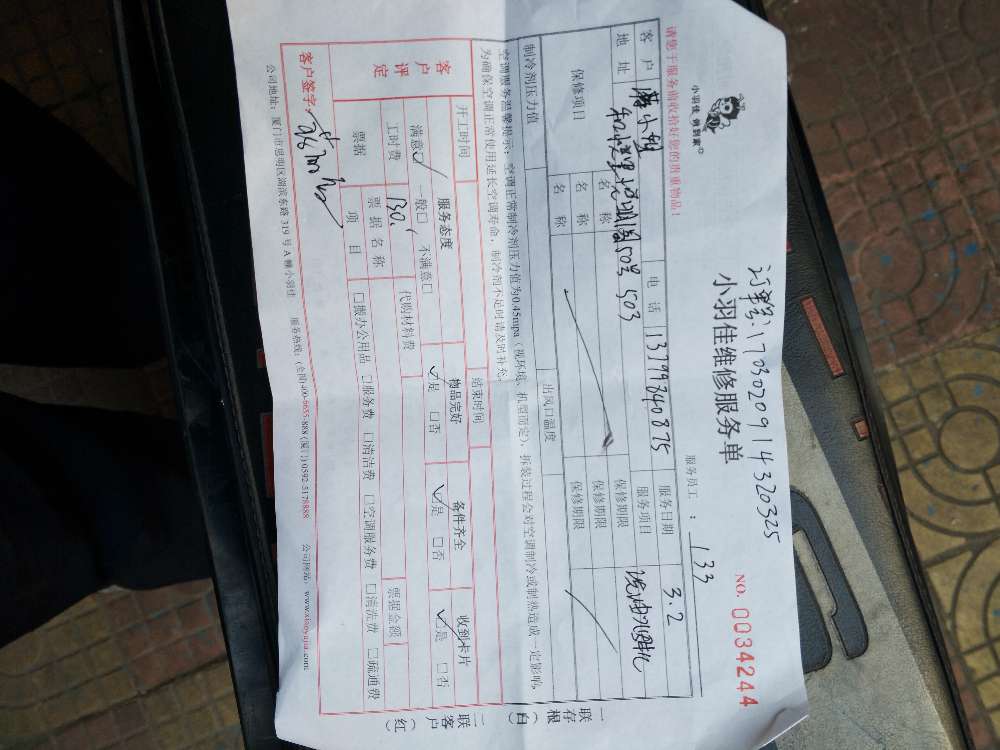 小羽佳 俐到家
订单号:1703020914320325
小羽佳维修服务单
NO. 0034244
请您于服务前收拾好您的贵重物品!
服务员工: 133
客户 电话 13799840875 服务日期 3.2
地址 50号 503 服务项目 洗油烟机
保修项目 名称 保修期限
名称 保修期限
名称 保修期限
制冷剂压力值 出风口温度
空调服务温馨提示:空调正常制冷剂压力值为0.45mpa(视环境、机型而定),拆装过程会对空调制冷或制热造成一定影响,
为确保空调正常使用延长空调寿命,制冷剂不足时请及时补充。
开工时间 结束时间
客户评定 服务态度 物品完好 备件齐全 收到卡片
满意☑ 一般□ 不满意□ ☑是 □否 ☑是 □否 ☑是 □否
工时费 130. 代购材料费
票据 票据名称 票据金额
项目 □搬办公用品 □服务费 □清洁费 □空调服务费 □清洗费 □疏通费
客户签字:
公司地址:厦门市思明区湖滨东路 319 号 A 幢小羽佳 服务热线:(全国)400-6655-888 (厦门)0592-5178888 公司网站:www.xiaoyujia.com
一联存根(白)
二联客户(红)